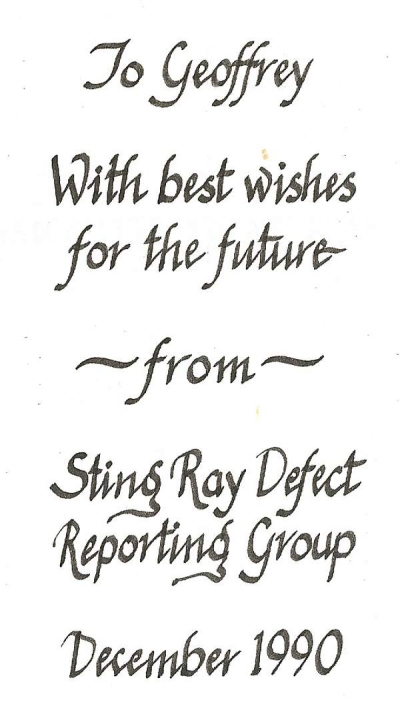 To Geoffrey
With best wishes
for the future
~from~
Sting Ray Defect
Reporting Group
December 1990